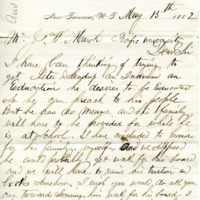 New Tacoma, W. T. May 15th 1882
Mr. J. W. Marsh Pacific University
Dear Sir
I have been thinking of trying to
get Peter Stanup an Indian an
Education he desires to be Educated
so he can preach to his people
But he has no means and his family
will have to be provided for while he
is at School. I have concluded to provide
for his family myself. And we suppose
he can probably get work for his board
and we will have to raise his tuition and
books somehow, I wish you would do all you
can toward securing him work for his board, I